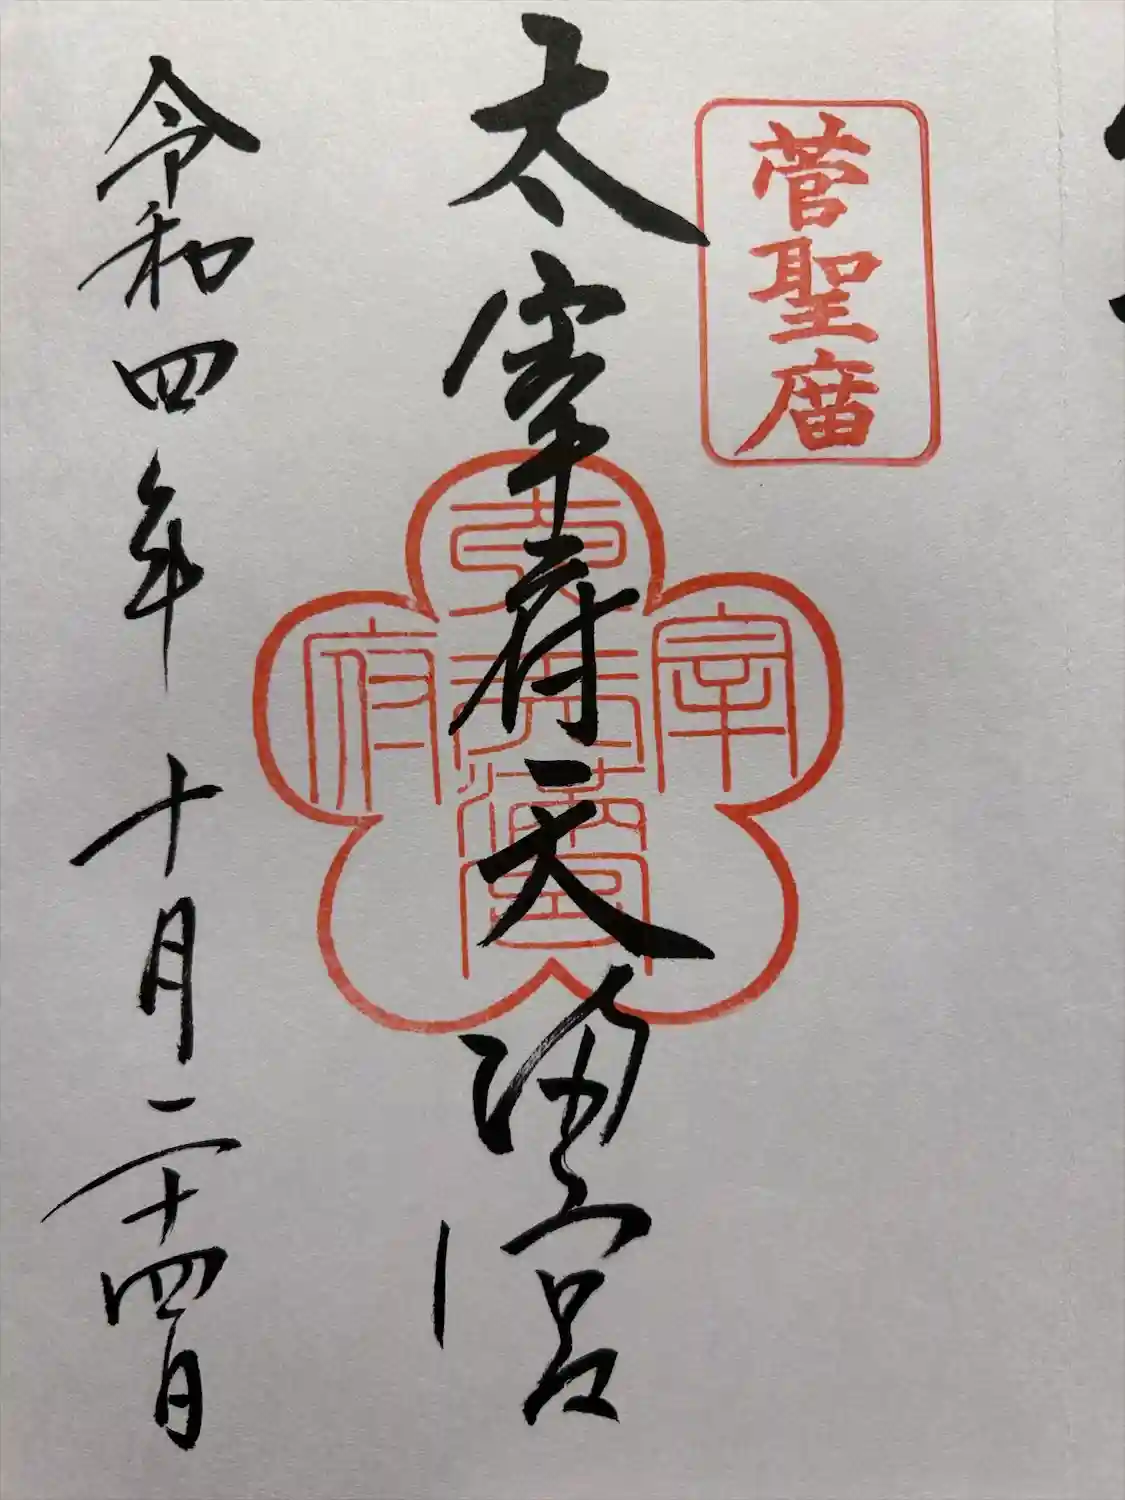 菅聖庿
太宰府天満宮
太宰府天満宮
令和四年十月二十四日